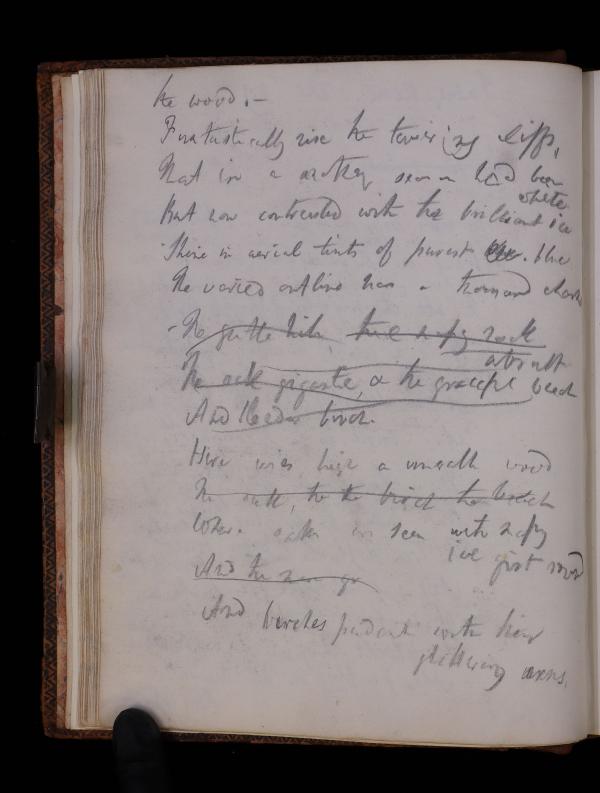 the wood. -
Fantastically rise the towering cliffs,
That in a another season had been
white
But now contrasted with the brilliant ice
Shine in aerial tints of purest blue
The varied outline has a thousand charms
- The gentle hill, the rock
abrupt
The oak gigantic, or the graceful beech
And birch.
Here rises high a wood
The oak, the the birch the beech
Where oaks are seen with
ice girt
And the
And birches pendant with their
glittering arms.